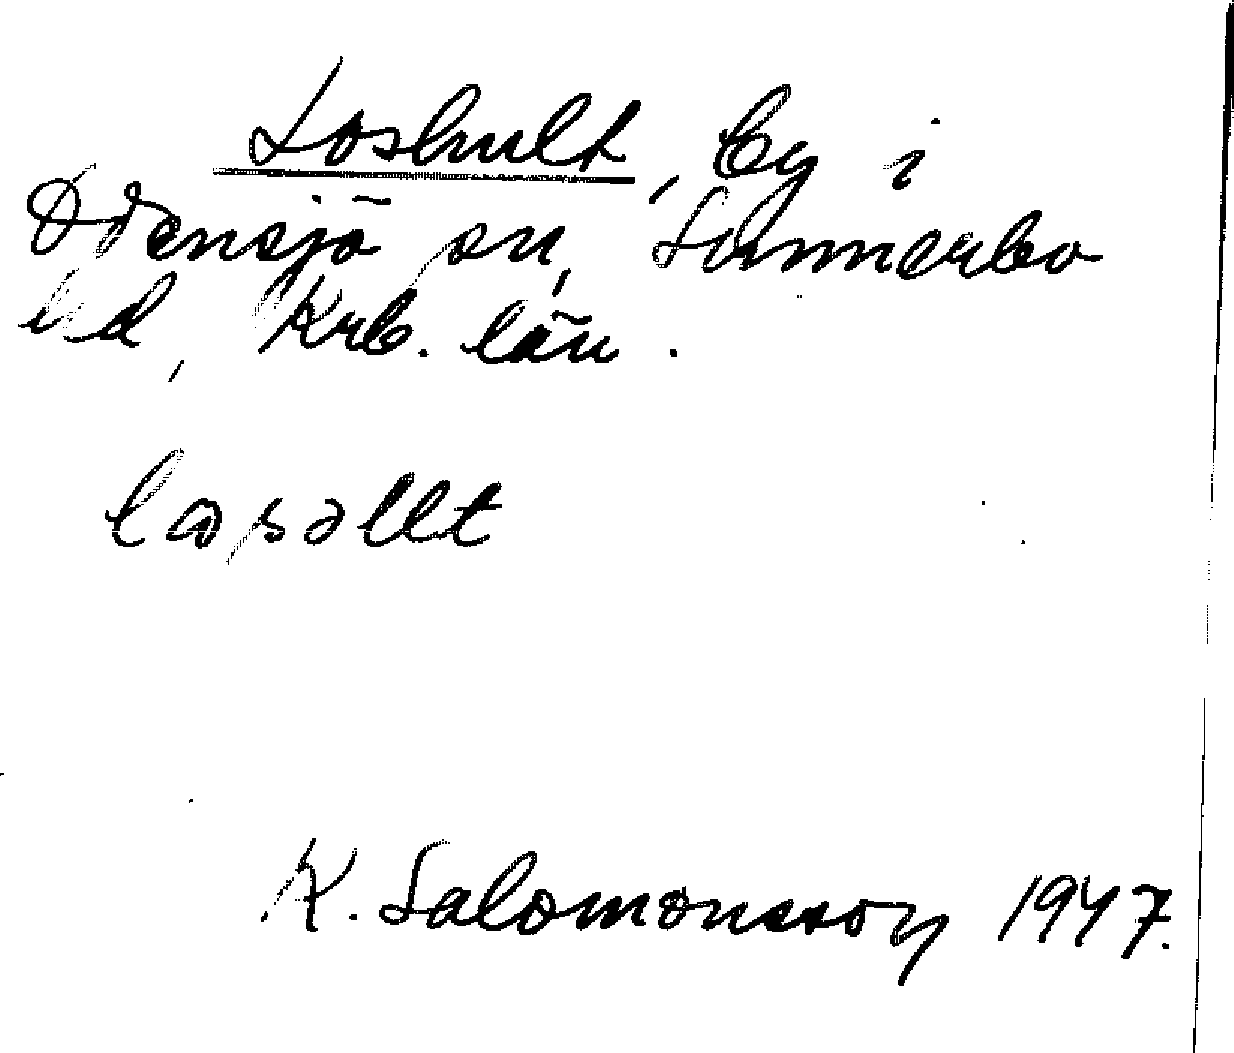 Loshult, by i
Odensjö sn, Sunnerbo
hd, Krb. län.
lωsəllt
K. Salomonsson 1947.